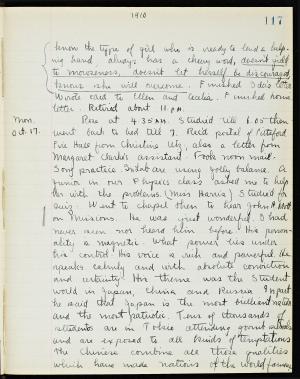 1910
117
know the type of girl who is ready to lend a help-
ing hand, always has a cheery word, doesn't yield
to moroseness, doesn't let herself be discouraged,
knows she will overcome. Finished
Wrote card to Ellen and Cecilia. Finished home
letter. Retired about 11 P.M.
Mon. Rose at 4:35 A.M. Studied till 6:05 then
Oct. 17. went back to bed till 7. Rec'd postal of
Fire Hall from Christina also a letter from
Margaret Clarke's assistant. Took room mail.
Song practice. In Lab are using Jolly balance. A
Junior in our Physics class asked me to help
her with the problems, (Miss Harris). Studied for
quiz. Went to chapel then to hear John R. Mott
on Missions. He was just wonderful. I had
never seen nor heard him before. His person-
ality is magnetic. What power lies under
his control! His voice is rich and powerful. He
speaks calmly and with absolute conviction
and certainty. His theme was the Student
world in Japan, China and Russia. In part
he said that Japan is the most brilliant nation
and the most patriotic. Tens of thousands of
students are in Tokio attending
and are exposed to all kinds of temptations.
The Chinese combine all those qualities
which have made nations of the world famous